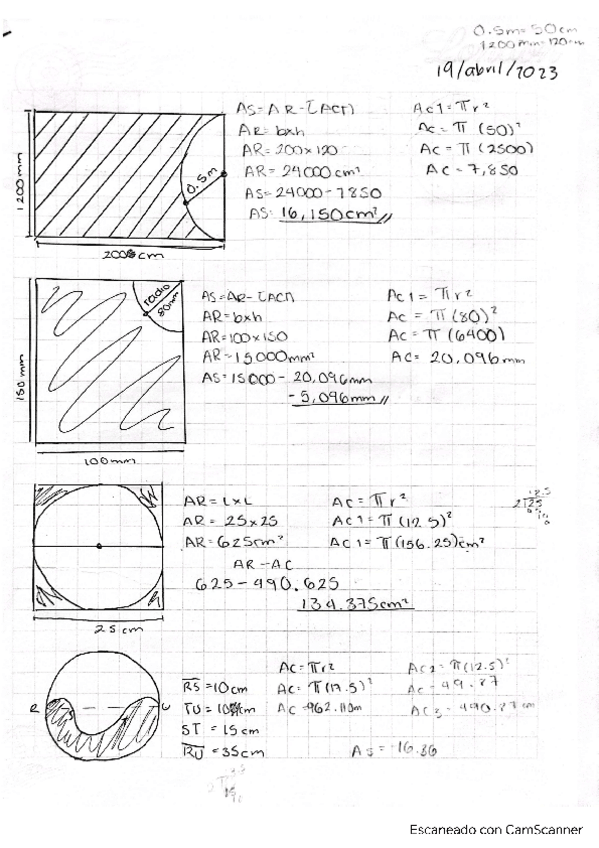 0.5m=50cm
1200mm=120cm
19/abril/2023
1200mm
0.5m
200cm
AS=AR-[AC1]
AR=bxh
AR=200x120
AR=24000cm²
AS=24000-7850
AS=16,150cm²//
Ac1=πr²
Ac=π(50)²
Ac=π(2500)
Ac=7,850
150mm
radio
80mm
100mm
AS=AR-[AC1]
AR=bxh
AR=100x150
AR=15000mm²
AS=15000-20,096mm
-5,096mm//
Ac1=πr²
Ac=π(80)²
Ac=π(6400)
Ac=20,096mm
25cm
AR=LxL
AR=25x25
AR=625cm²
AR-AC
625-490.625
134.375cm²
Ac=πr²
Ac1=π(12.5)²
Ac1=π(156.25)cm²
12.5
2 25
R
S
U
RS=10cm
TU=10cm
ST=15cm
RU=35cm
Ac=πr²
Ac=π(17.5)²
Ac=962.11cm
Ac2=π(12.5)²
Ac=49.87
Ac3=490.87cm
As=-16.86
Escaneado con CamScanner